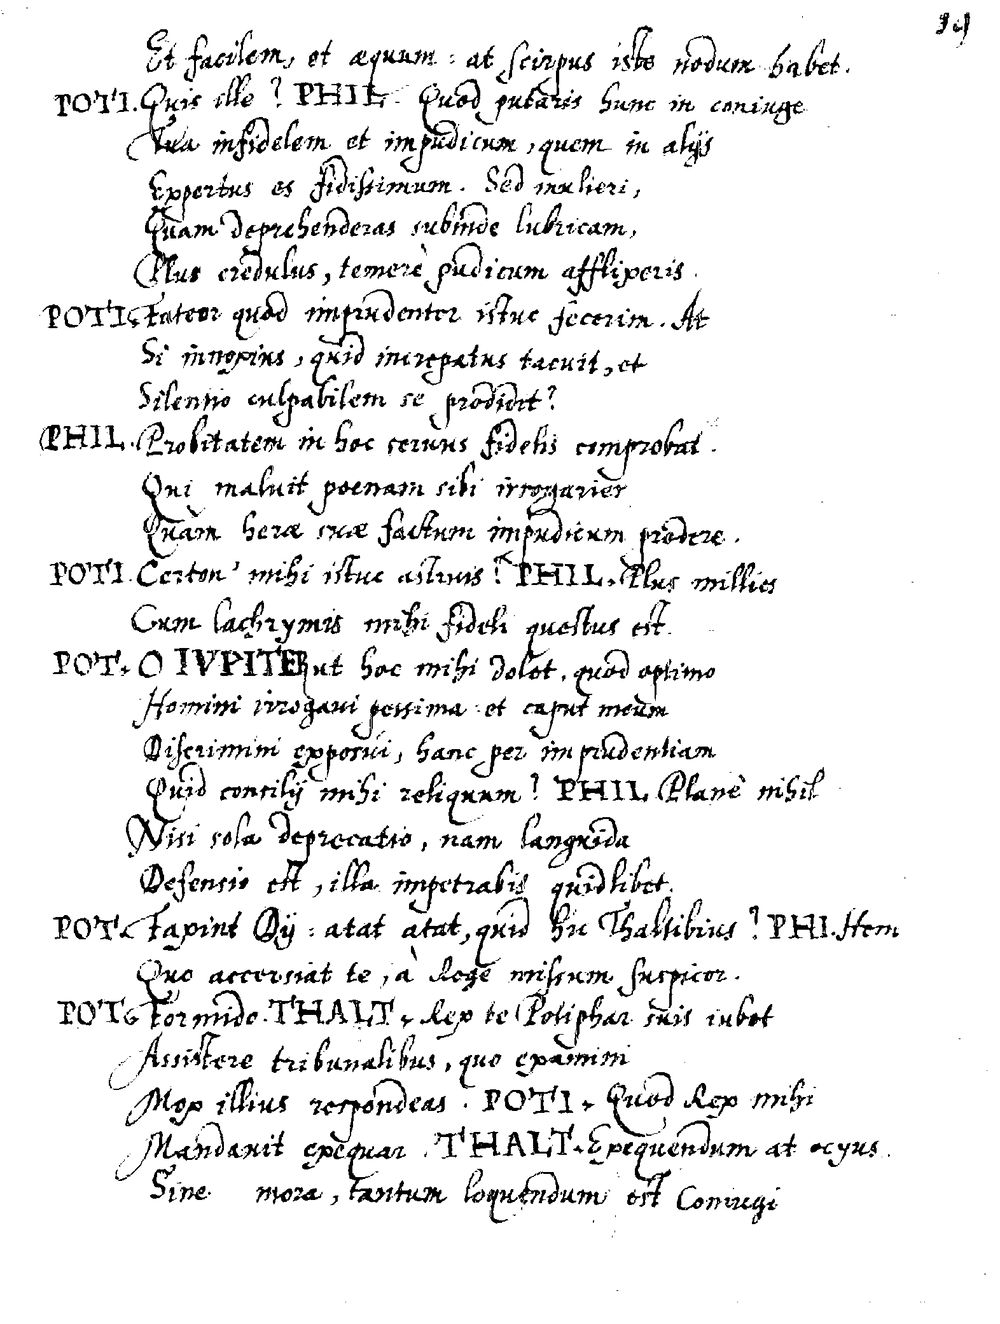 39
Et facilem, et æquum : at scirpus iste nodum habet.
POTI. Quis ille ? PHIL. Quod putaris hunc in coniuge
Tua infidelem et impudicum, quem in alijs
Expertus es fidissimum. Sed mulieri,
Quam deprehenderas subinde lubricam,
Plus credulus, temerè pudicum afflixeris.
POTI. Fateor quod imprudenter istuc fecerim. At
Si innoxius, quid increpatus tacuit, et
Silentio culpabilem se prodidit ?
PHIL. Probitatem in hoc seruus fidelis comprobat.
Qui maluit poenam sibi irrogarier
Quàm heræ suæ factum impudicum prodere.
POTI. Certon' mihi istuc astruis ? PHIL. Plus millies
Cum lachrymis mihi fideli questus est.
POT. O IVPITER ut hoc mihi dolet, quod optimo
Homini irrogaui pessima et caput meum
Discrimini exposui, hanc per imprudentiam
Quid consilij mihi reliquum ? PHIL Planè nihil
Nisi sola deprecatio, nam languida
Defensio est, illa impetrabis quidlibet.
POT. Faxint Dij : atat atat, quid hic Thaltibius ? PHI. Hem
Quo accersiat te, à Rege missum suspicor.
POT. Formido. THALT. Rex te Potiphar suis iubet
Assistere tribunalibus, quo examini
Mox illius respondeas. POTI. Quod Rex mihi
Mandauit exequar. THALT. Exequendum at ocyus.
Sine mora, tantum loquendum est Coniugi